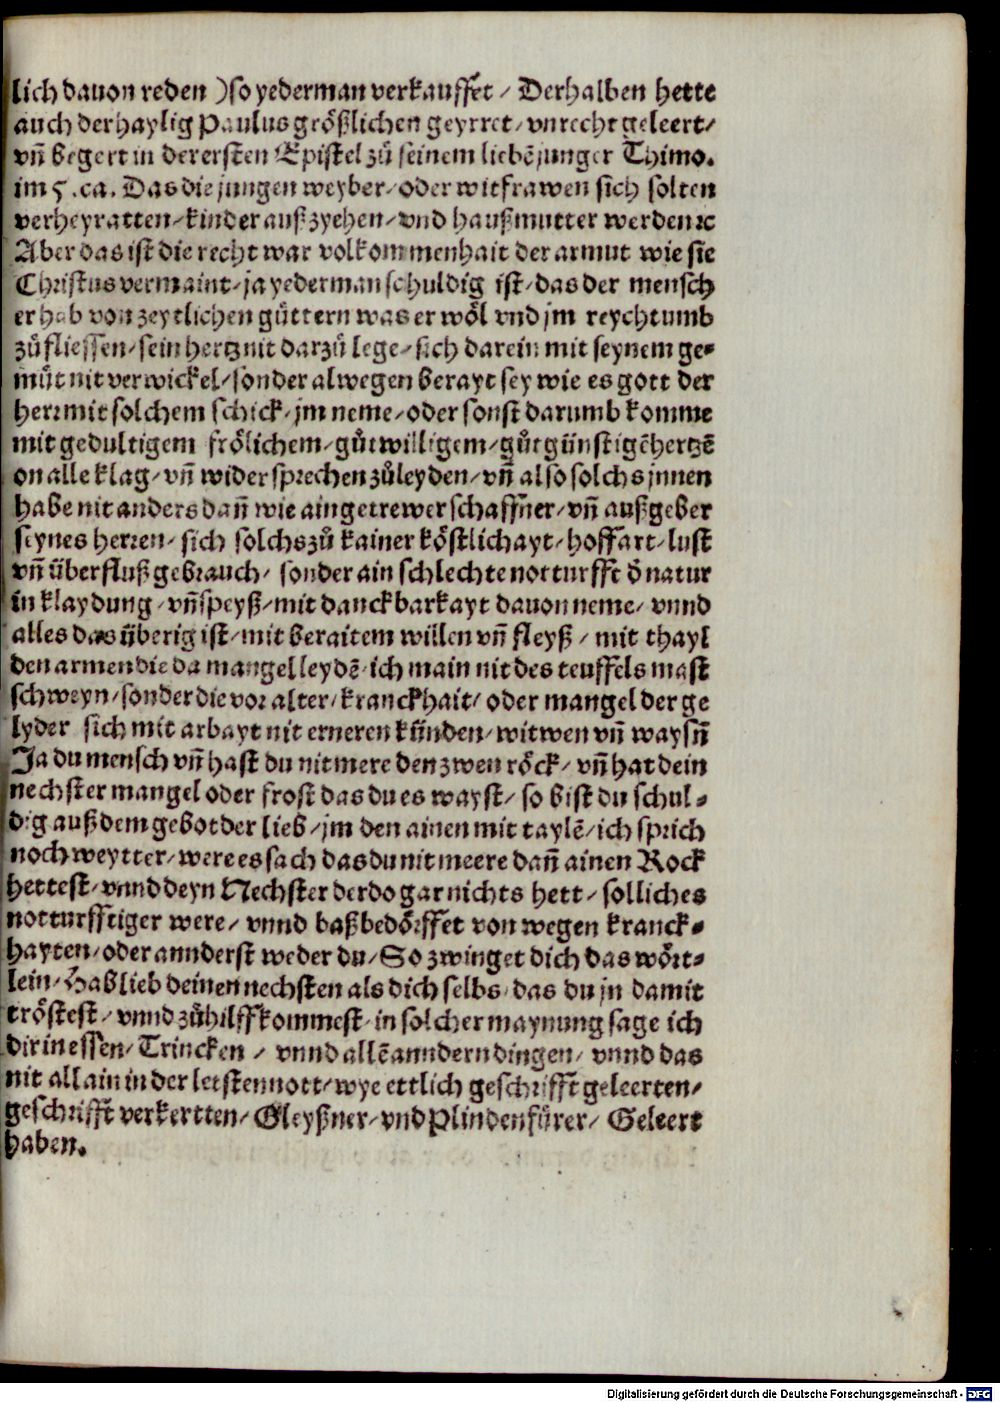 lich dauon reden) so yederman verkauffet / Derhalben hette
auch der haylig Paulus größlichen geyrret / vnrecht geleert /
vñ begert in der ersten Epistel zů seinem liebē junger Thimo.
im 5. ca. Das die jungen weyber / oder witfrawen sich solten
verheyratten / kinder auß zyehen / vnd haußmutter werden ꝛc
Aber das ist die recht war volkommenhait der armut wie sie
Christus vermaint / ja yederman schuldig ist / das der mensch
er hab von zeytlichen güttern was er wöl vnd jm reychtumb
zůfliessen / sein hertz nit darzů lege / sich darein mit seynem ge⸗
můt nit verwickel / sonder alwegen berayt sey wie es gott der
herr mit solchem schick / jm neme / oder sonst darumb komme
mit gedultigem frölichem / gůtwilligem / gůtgünstigē hertzē
on alle klag / vñ widersprechen zůleyden / vñ also solchs jnnen
habe nit anders dañ wie ain getrewer schaffner / vñ außgeber
seynes herren / sich solchs zů kainer köstlichayt / hoffart / lust
vñ überfluß gebrauch / sonder ain schlechte notturfft d̄ natur
in klaydung / vñ speyß / mit danckbarkayt dauon neme / vnnd
alles das überig ist / mit beraitem willen vñ fleyß / mit thayl
den armen die da mangel leydē / ich main nit des teuffels mast
schweyn / sonder die vor alter / kranckhait / oder mangel der ge
lyder sich mit arbayt nit erneren künden / witwen vñ waysñ
Ja du mensch vñ hast du nit mere den zwen röck / vñ hat dein
nechster mangel oder frost das du es wayst / so bist du schul⸗
dig auß dem gebot der lieb / jm den ainen mit taylē / ich sprich
noch weytter / were es sach das du nit meere dañ ainen Rock
hettest / vnnd deyn Nechster der do gar nichts hett / solliches
notturfftiger were / vnnd baß bedörffet von wegen kranck⸗
hayten / oder annderst weder du / So zwinget dich das wört⸗
lein / Hab lieb deinen nechsten als dich selbs / das du jn damit
tröstest / vnnd zůhilff kommest / in solcher maynung sage ich
dir in essen / Trincken / vnnd allē anndern dingen / vnnd das
nit allain in der letsten nott / wye ettlich geschrifft geleerten /
geschrifft verkertten / Gleyßner / vnd Plindenfürer / Geleert
haben.
Digitalisierung gefördert durch die Deutsche Forschungsgemeinschaft - DFG